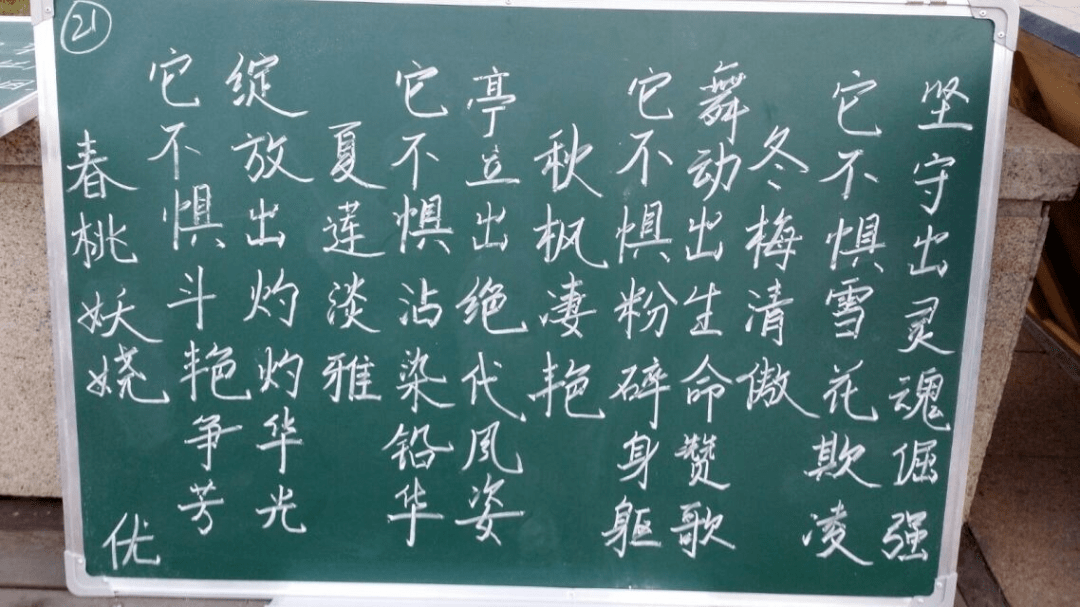 21
春桃妖娆
它不惧斗艳争芳
绽放出灼灼华光
夏莲淡雅
它不惧沾染铅华
亭立出绝代风姿
秋枫凄艳
它不惧粉碎身躯
舞动出生命赞歌
冬梅清傲
它不惧雪花欺凌
坚守出灵魂倔强
优